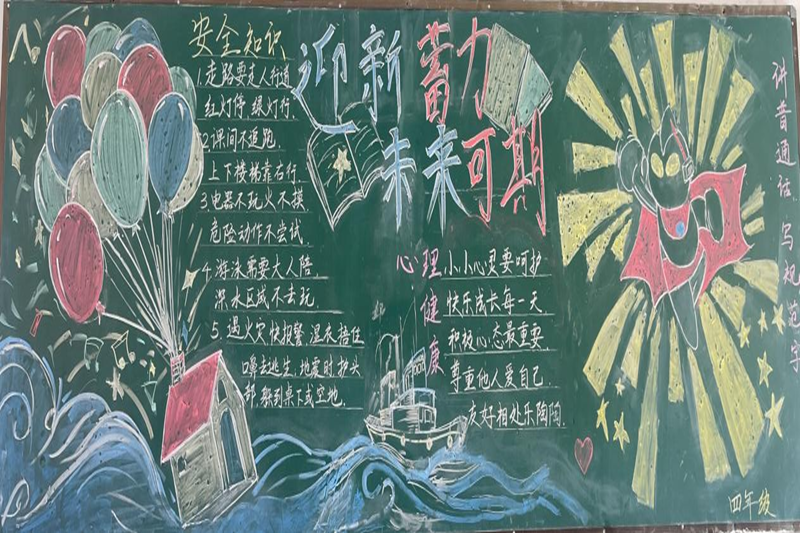 安全知识
1.走路要走人行道
红灯停绿灯行.
2.课间不追跑.
上下楼梯靠右行.
3.电器不玩火不摸
危险动作不尝试.
4.游泳需要大人陪.
深水区域不去玩.
5.遇火灾快报警,湿衣捂住
口鼻去逃生,地震时护头
部,躲到桌下或空地.
迎新蓄力
未来可期
心理健康
小小心灵要呵护
快乐成长每一天
积极心态最重要
尊重他人爱自己
友好相处乐陶陶.
讲普通话 写规范字
四年级